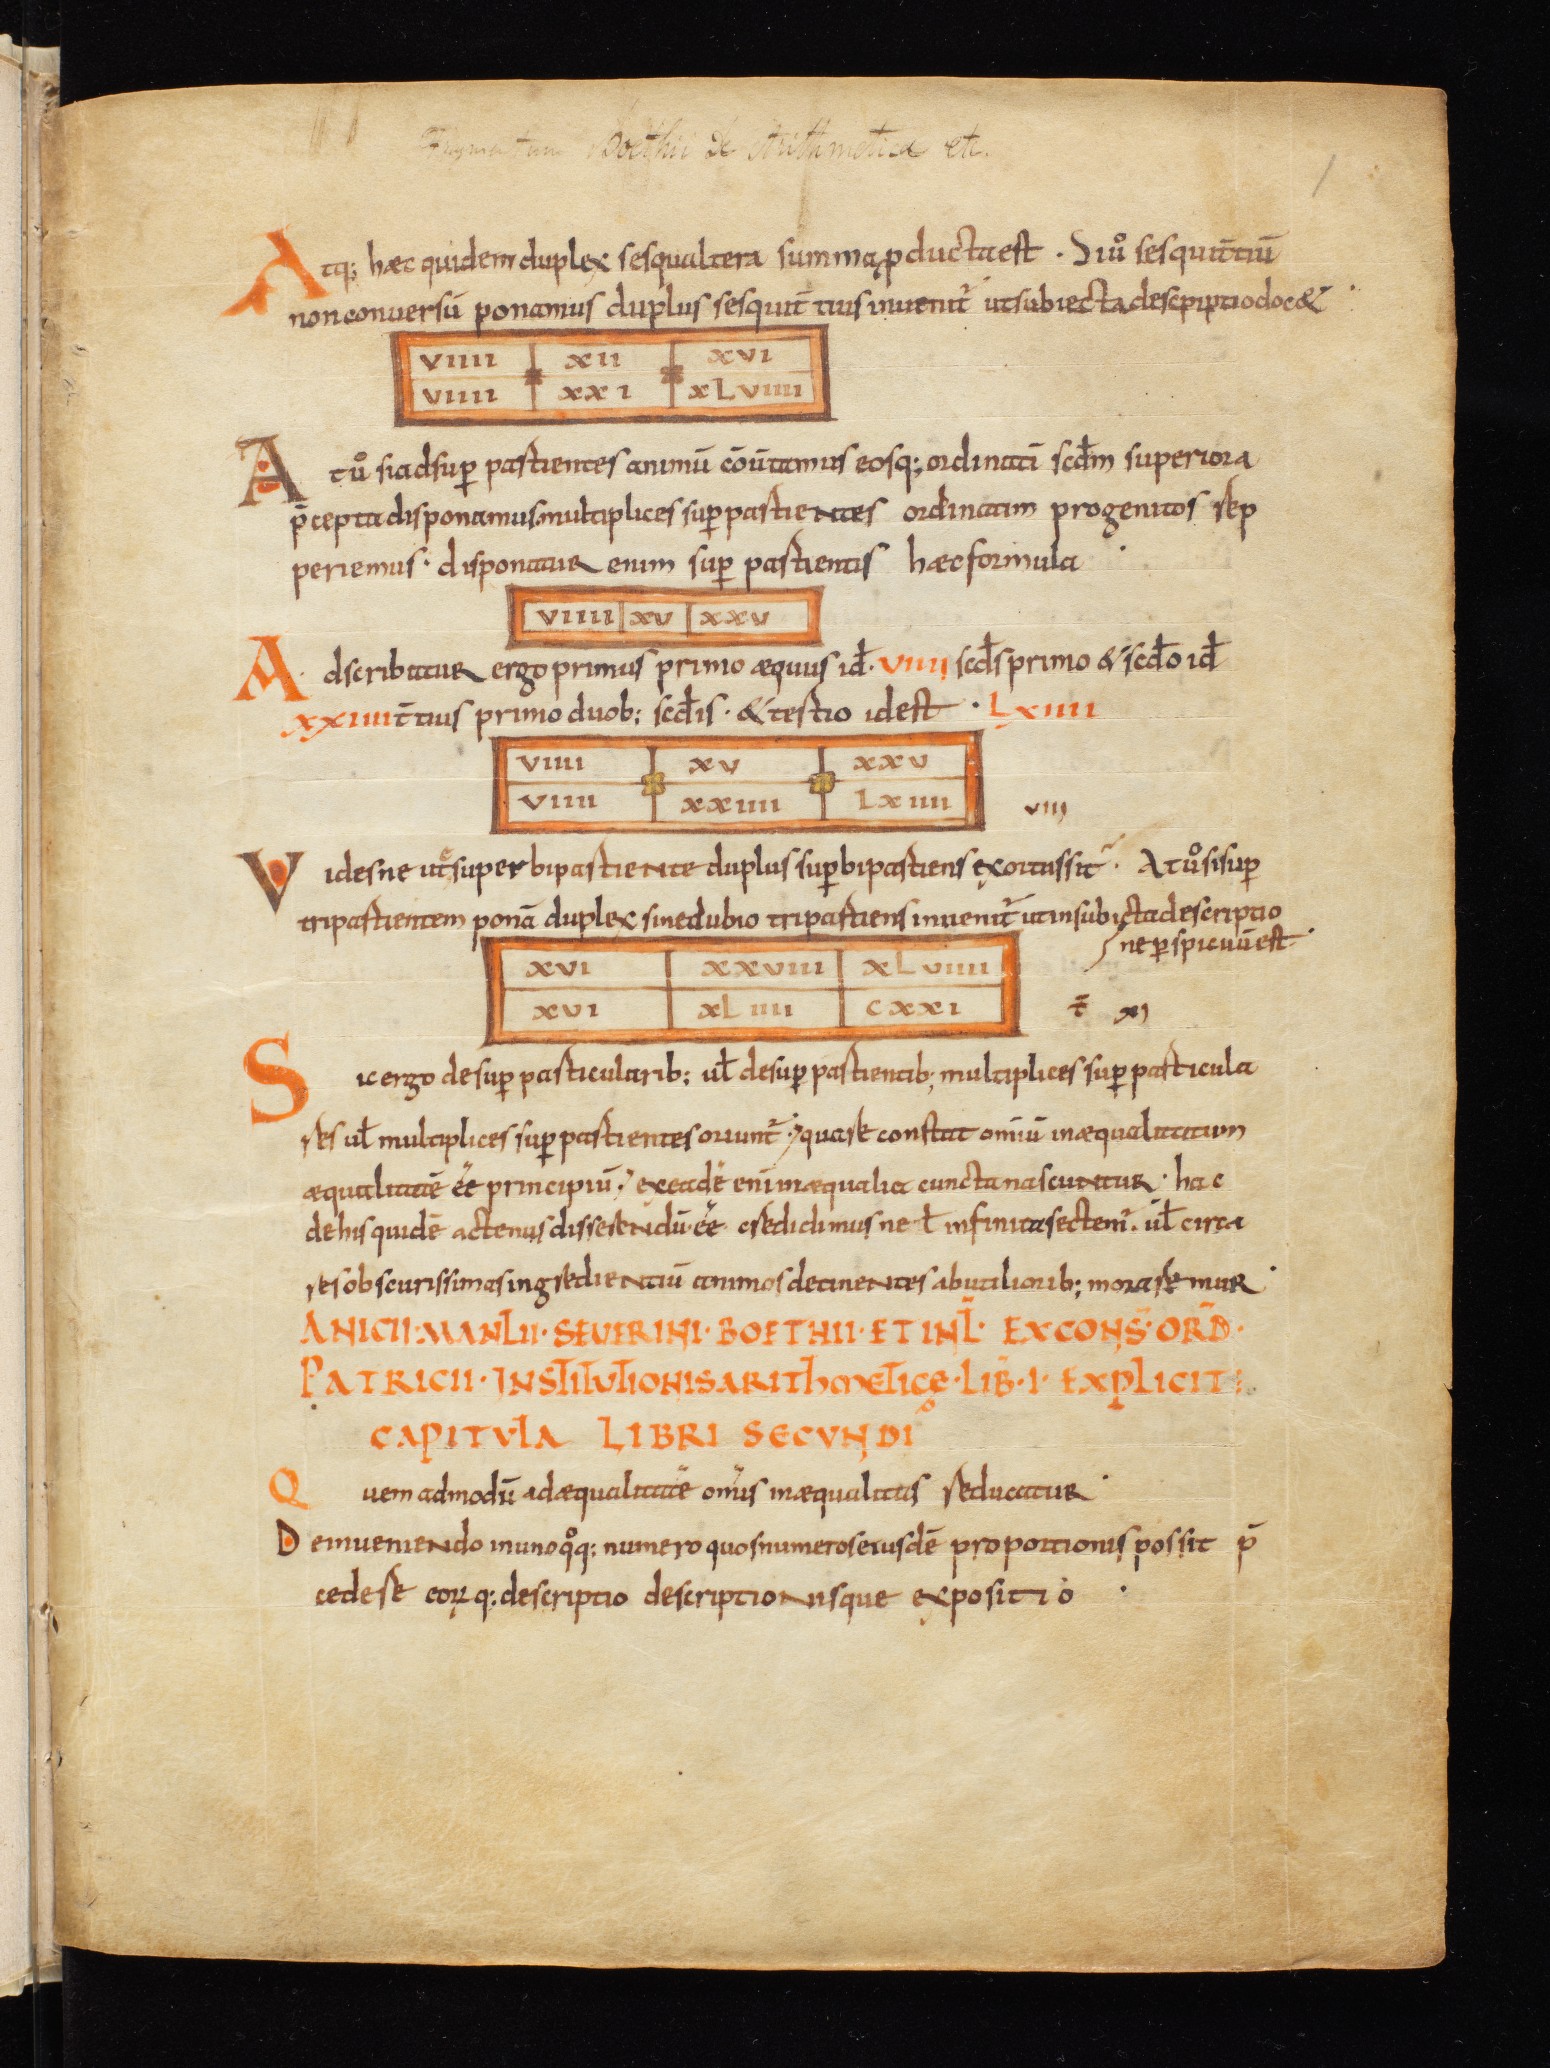 Fragmentum Boethii de Arithmetica etc.
1
Atq; hæc quidem duplex sesqualtera summa ꝓducta est · Siuo᷒ sesquit̄tiū
non conuersū ponamus duplus sesquit̄tius inuenit᷒ ut subiecta descpiptio doc& ·
viiii xii xvi
viiii xxi xLviiii
Atuo᷒ si ad suꝑ partientes animū cōūtamus eosq; ordinatī scd̄m superiora
p̄cepta disponamus multiplices suꝑpartientes ordinatim progenitos rep
periemus · disponatur enim suꝑ partientis hæc formula ·
viiii xv xxv
Adscribatur ergo primus primo æquus id̄ · viiii scd̄s primo & scd̄o id̄
xxiiii t̄tius primo duob; scd̄is · & tertio id est · Lxiiii
viiii xv xxv
viiii xxiiii Lxiiii viiij
Videsne ut super bipartiente duplus suꝑbipartiens exortus sit · Atuo᷒ si suꝑ
tripartientem ponā duplex sine dubio tripartiens inuenit᷒ ut in subicta descriptio
ne ꝑspicuū est ·
xvi xxviii xLviiii
xvi xLiiii cxxi t̄ xj
Sic ergo de suꝑ particularib; ul̄ de suꝑ partientib; multiplices suꝑ particula
res ul̄ multiplices suꝑ partientes oriunt᷒ · quare constat omīū inæqualitatum
æqualitatē ēe principiū · ex eadē enī inæqualia cuncta nascuntur · hac
de his quidē actenus disserendū ēe credidimus ne t̄ infinita sectem᷒ · ul̄ circa
res obscurissimas ingredientiū animos detinentes ab utiliorib; moraremur ·
ANICII · MANLII · SEVERINI · BOETHII · ET INL̄ · EXCONS̄ · ORD̄ ·
PATRICII · INSTITUTIONIS ARITHMETICĘ · LIB̄ · I · EXPLICIT :
CAPITULA LIBRI SECUNDI
Quem admodū ad æqualitatē omīs inæqualitas reducatur ·
De inueniendo in uno qo᷒q; numero quos numeros eiusdē proportionis possit p̄
cedere eoꝝ q; descriptio descriptionisque expositio ·